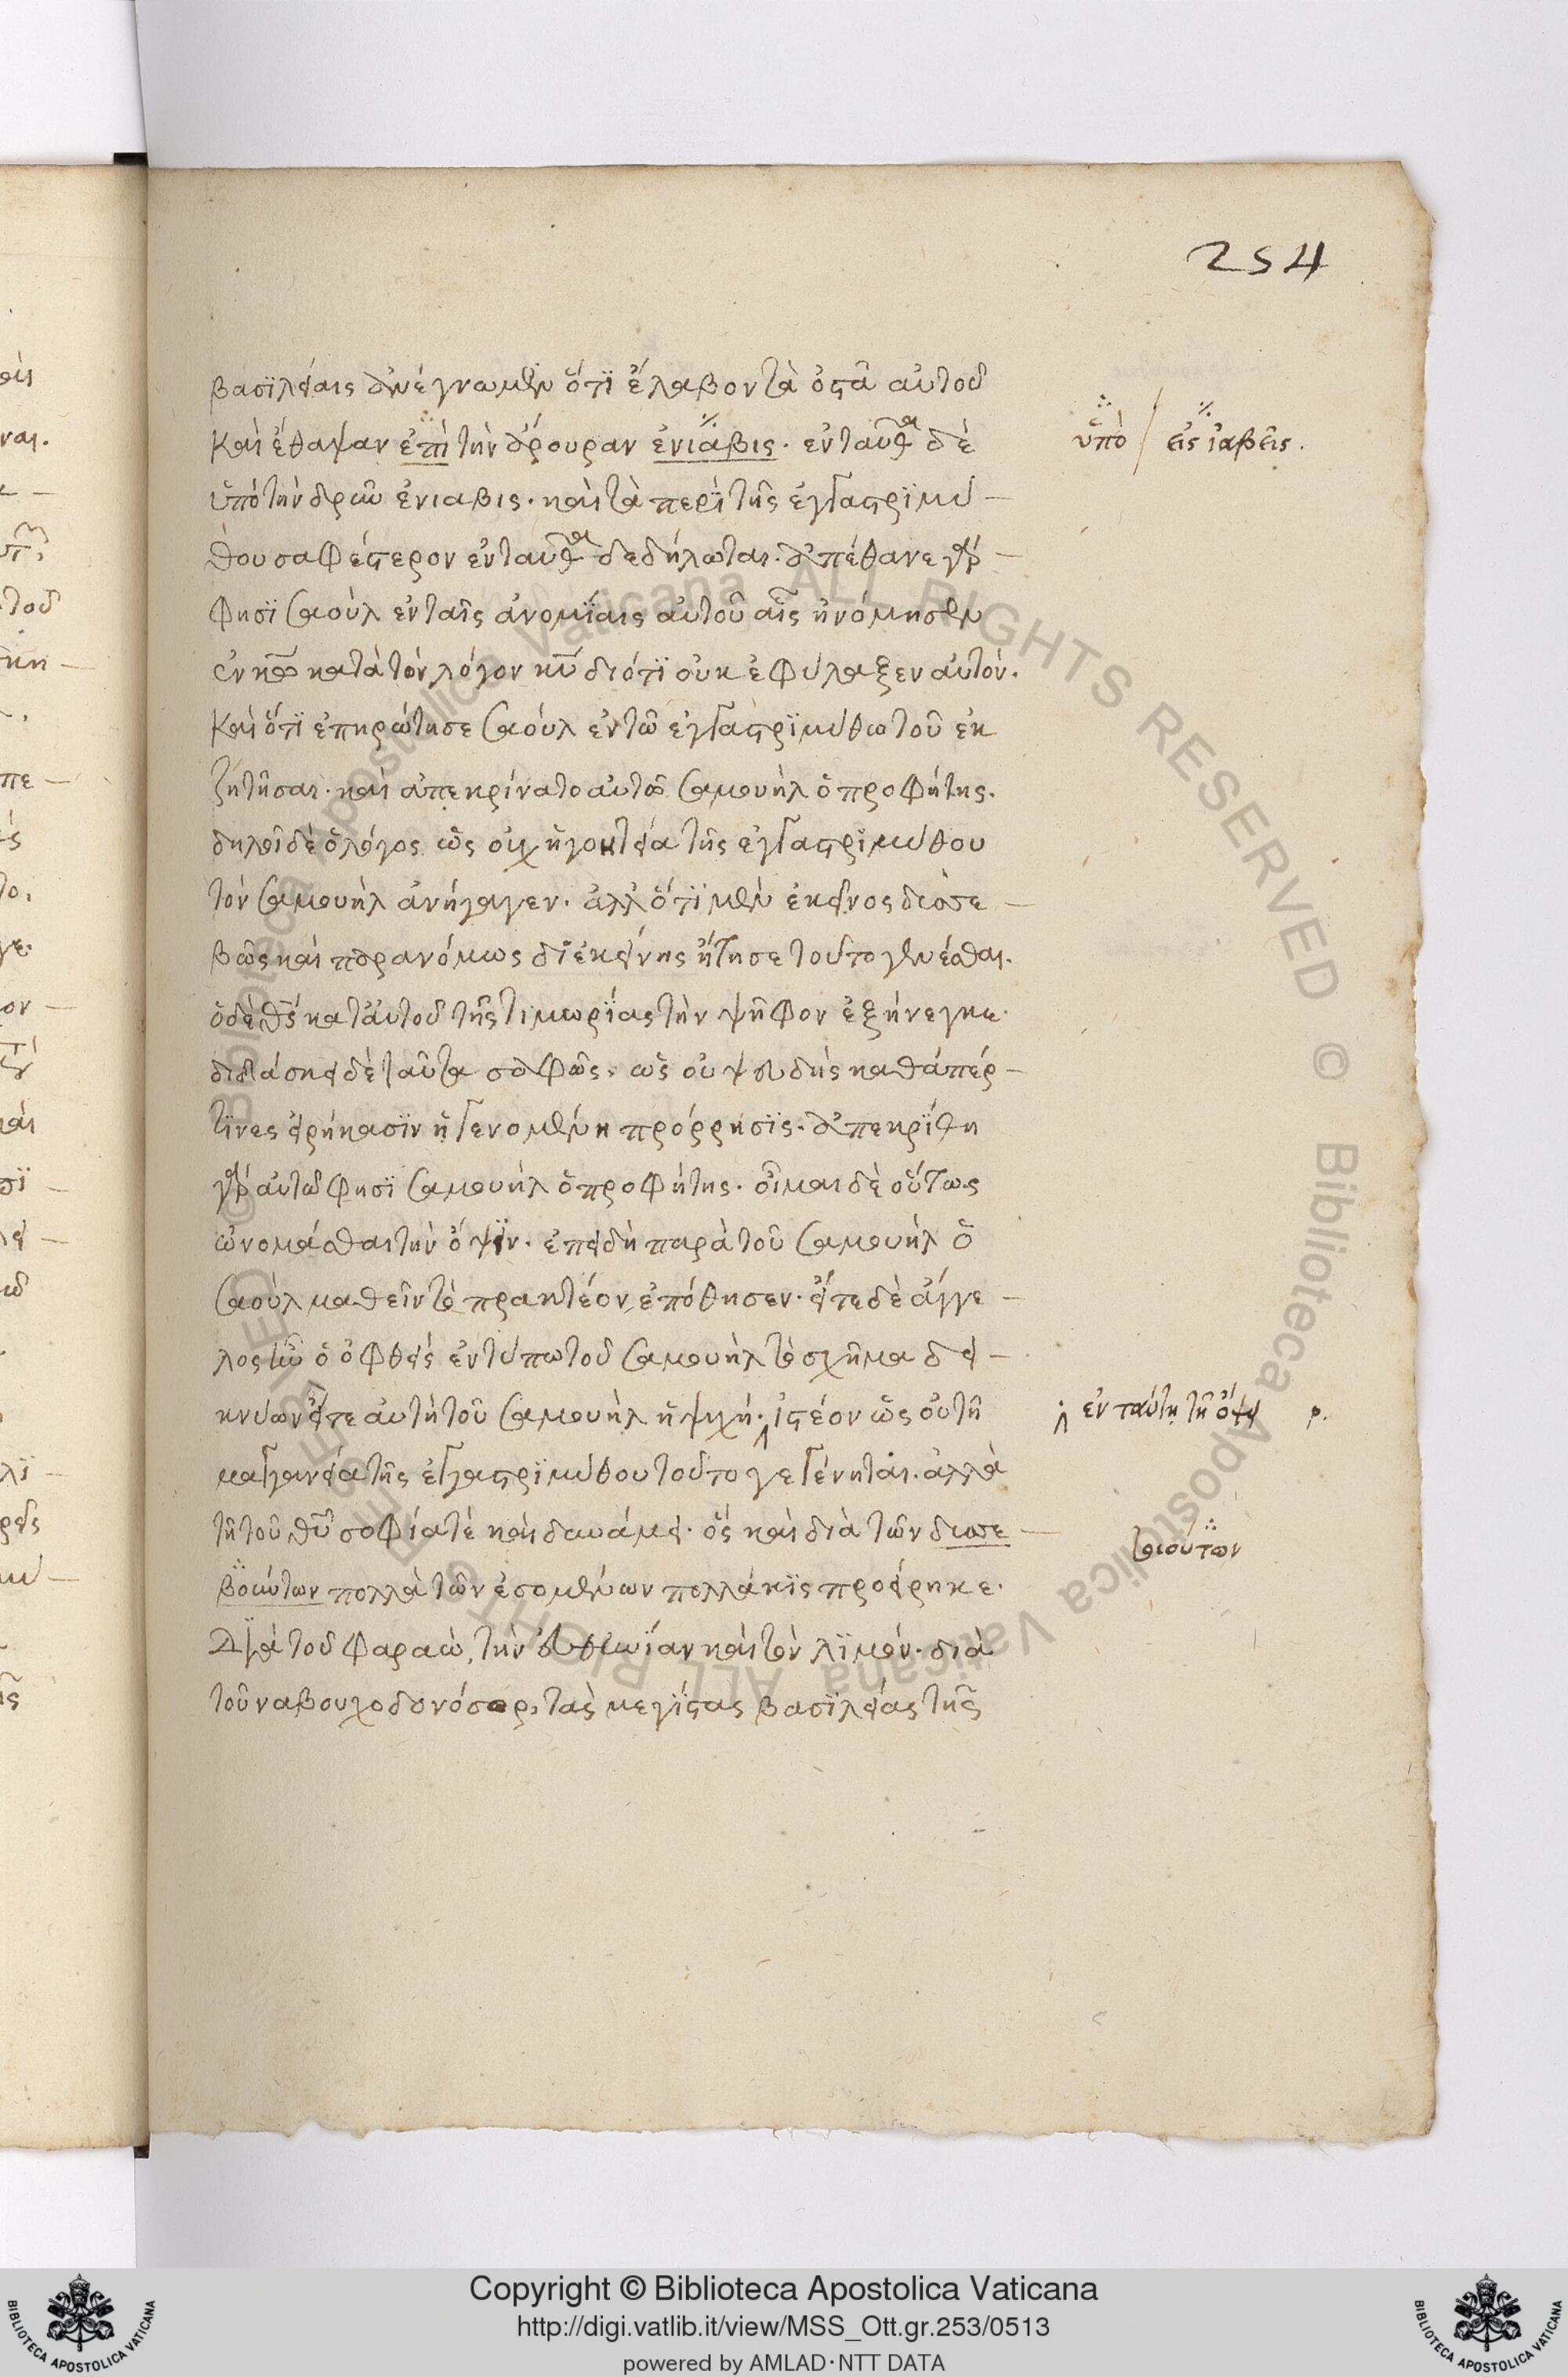 254
βασϊλείαις ἀνέγνωμεν ὅτϊ ἔλαβον τὰ ὀστᾶ αὐτοῦ
καὶ ἔθαψαν ἐπὶ τὴν ἄρουραν ἐνιάβις. ἐνταῦθα δὲ
ὑπὸ / εἰς ἰαβεῖς.
ὑπὸ τὴν δρῦν ἐνιαβις. καὶ τὰ περὶ τῆς ἐγγαστρϊμύ
θου σαφέστερον ἐνταῦθα δεδήλωται. ἀπέθανε γὰρ
φησϊ Σαοὺλ ἐν ταῖς ἀνομΐαις αὐτοῦ αἷς ἠνόμησεν
ἐν κω κατὰ τὸν λόγον κυ διότϊ οὐκ ἐφύλαξεν αὐτόν.
καὶ ὅτϊ ἐπηρώτησε Σαοὺλ ἐν τῶ ἐγγαστρϊμύθω τοῦ ἐκ
ζητῆσαι. καὶ ἀπεκρίνατο αὐτῶ Σαμουὴλ ὁ προφήτης.
δηλοῖ δὲ ὁ λόγος ὡς οὐχ ἡ γοητεία τῆς ἐγγαστρϊμύθου
τὸν Σαμουὴλ ἀνήγαγεν. ἀλλ ὅτϊ μὲν ἐκεῖνος δυσσε
βῶς καὶ παρανόμως δι ἐκείνης ᾔτησε τοῦτο γενέσθαι.
ὁ δὲ θς κατ αὐτοῦ τῆς τϊμωρΐας τὴν ψῆφον ἐξήνεγκε.
διδάσκει δὲ ταῦτα σαφῶς. ὡς οὐ ψευδὴς καθάπέρ
τϊνες εἰρήκασϊν ἡ γενομένη πρόρρησϊς. ἀπεκρϊθη
γὰρ αὐτῶ φησϊ Σαμουὴλ ὁ προφήτης. οἶμαι δὲ οὕτως
ὠνομάσθαι τὴν ὄψϊν. ἐπειδὴ παρὰ τοῦ Σαμουὴλ ὁ
Σαοὺλ μαθεῖν τὸ πρακτέον ἐπόθησεν. εἴτε δὲ ἄγγε
λος ἦν ὁ ὀφθεὶς ἐν τύπω τοῦ Σαμουὴλ τὸ σχῆμα δει
κνύων εἴτε αὐτὴ τοῦ Σαμουὴλ ἡ ψυχή. ἰστέον ὡς οὐ τῆ
ἐν ταύτη τῆ ὄψει
μαγγανεία τῆς ἐγγαστρϊμύθου τοῦτο γεγένηται. ἀλλὰ
τῆ τοῦ θυ σοφία τὲ καὶ δυνάμει. ὃς καὶ διὰ τῶν δυσσε
βούντων πολλὰ τῶν ἐσομένων πολλάκϊς προείρηκε.
τοιούτων
Διὰ τοῦ Φαραὼ, τὴν εὐθηνΐαν καὶ τὸν λϊμόν. διὰ
τοῦ ναβουχοδονόσορ, τὰς μεγίστας βασϊλείας τῆς
Copyright © Biblioteca Apostolica Vaticana
http://digi.vatlib.it/view/MSS_Ott.gr.253/0513
powered by AMLAD·NTT DATA